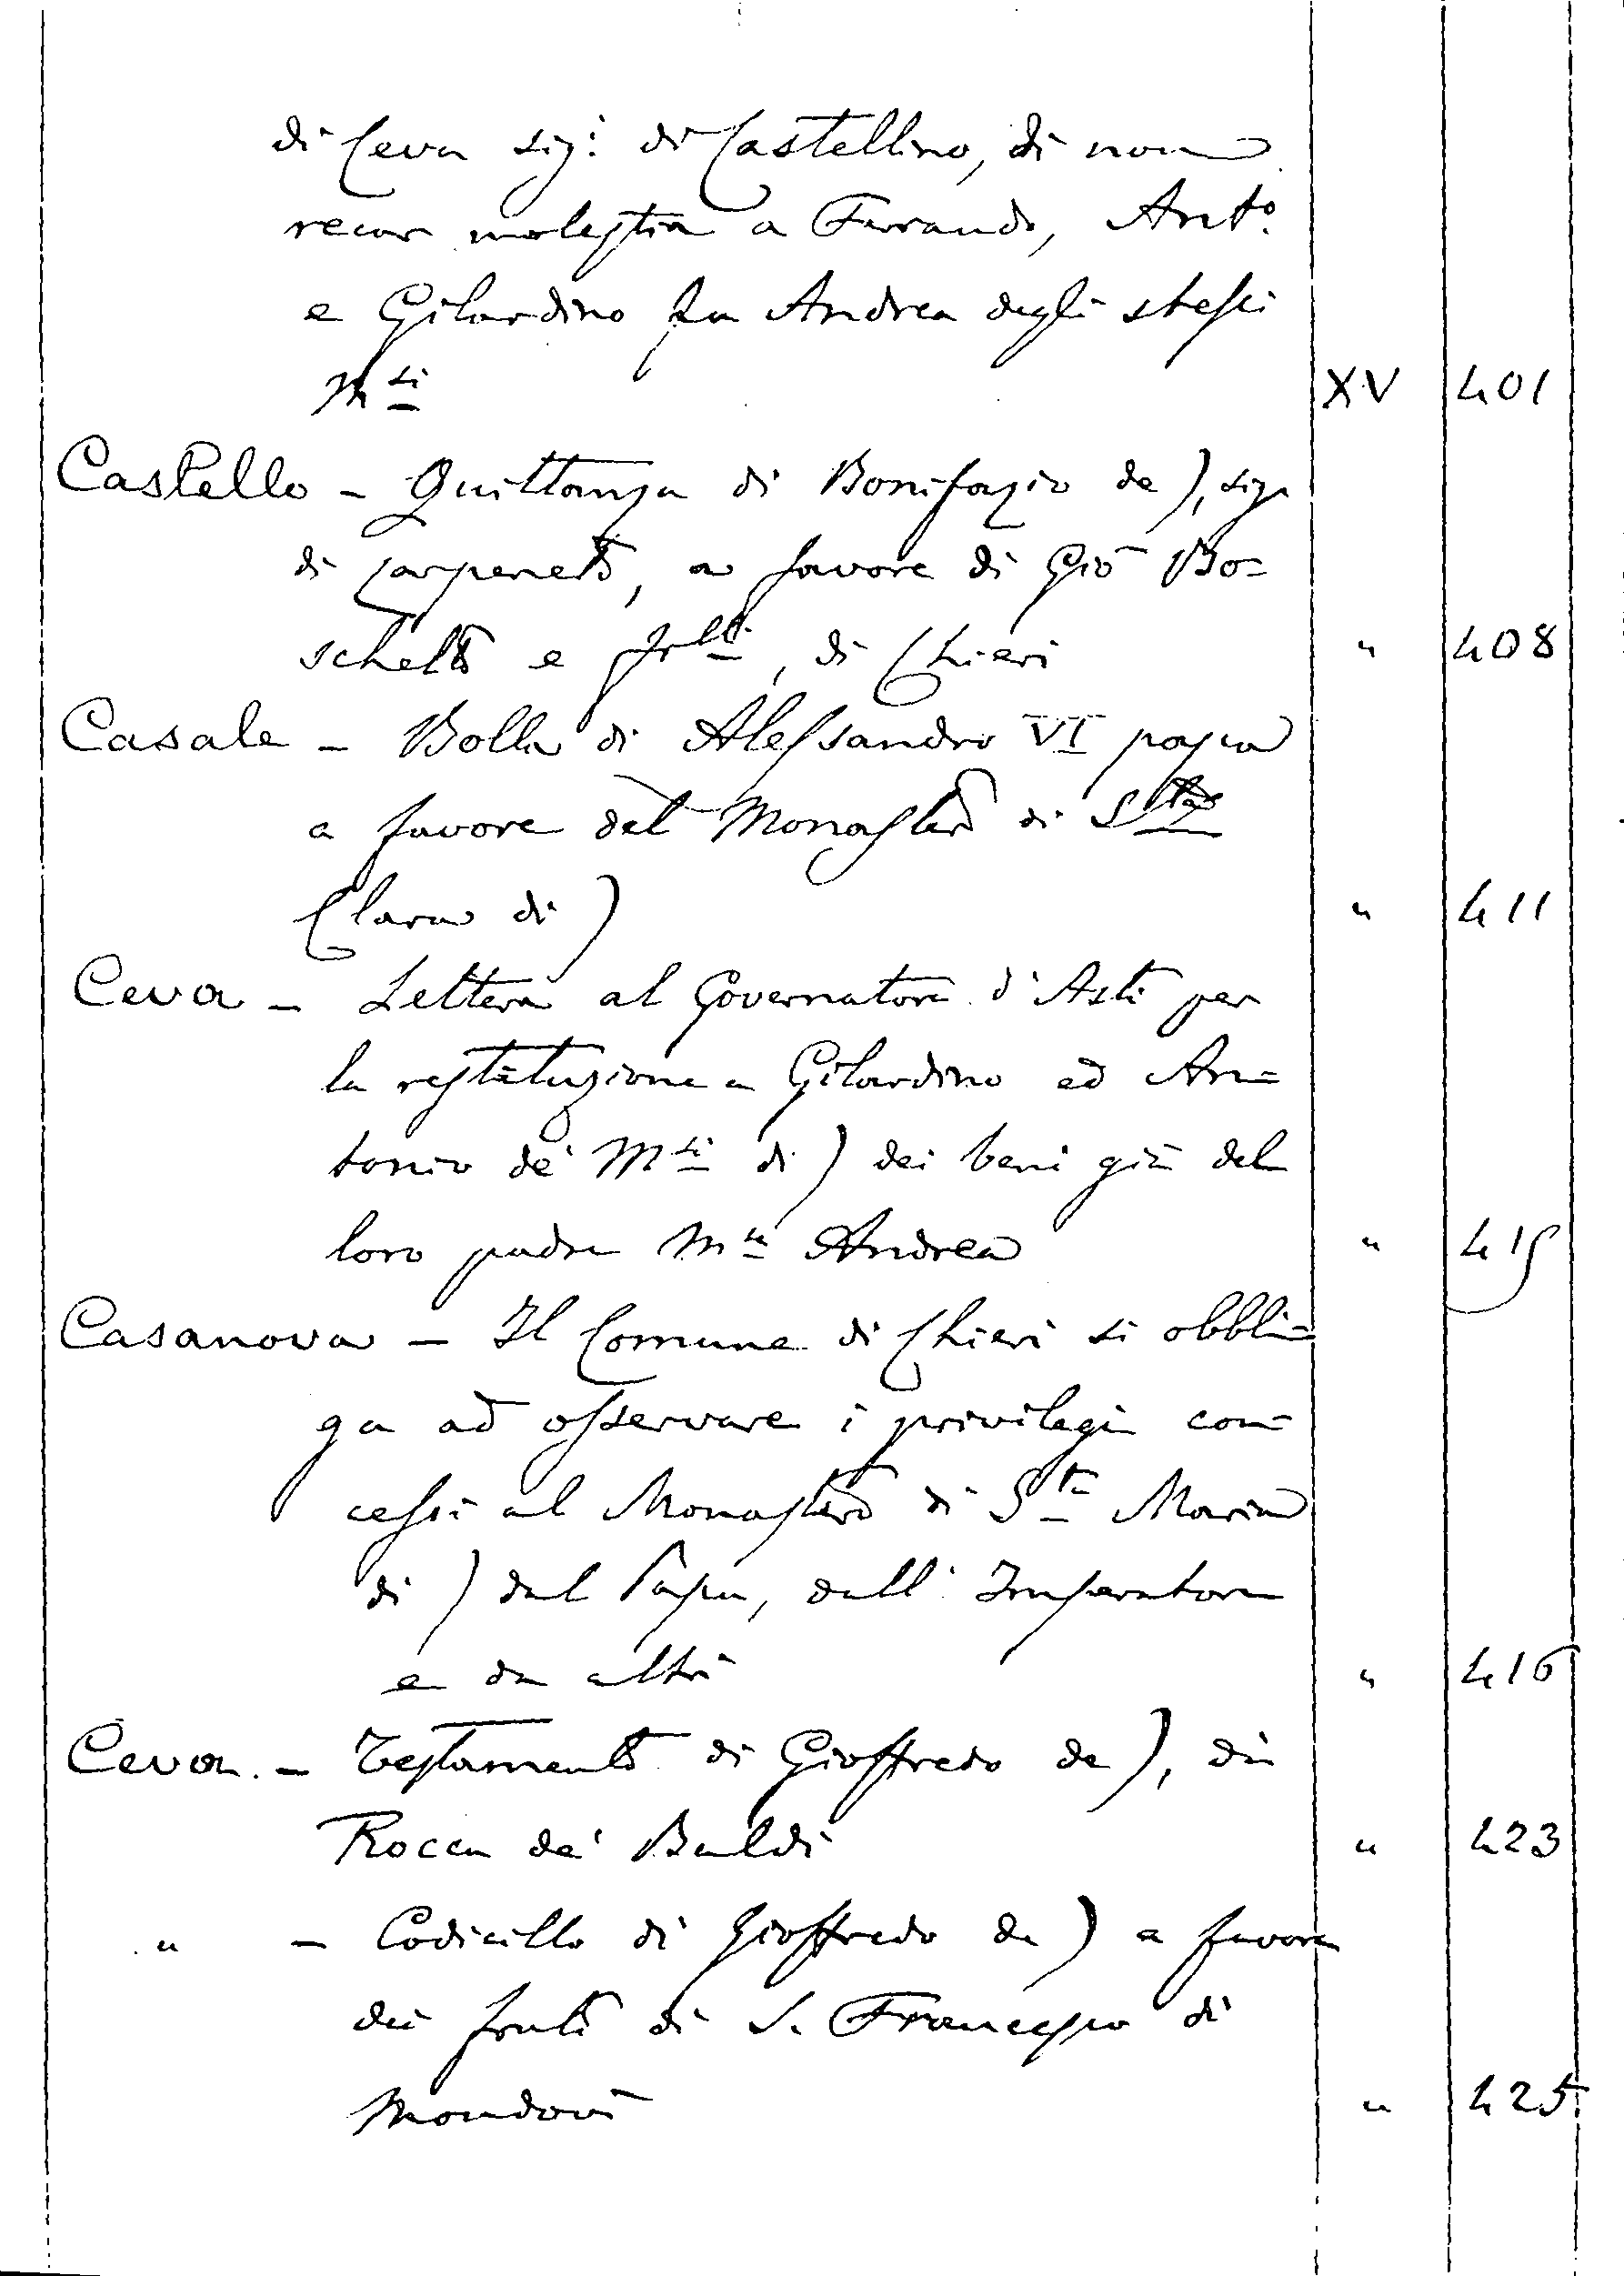 di Ceva sig.i di Castellino, di non
recar molestia a Ferrando, Ant.o
e Gilardino fu Andrea degli stessi
M.si XV 401
Castello - Quittanza di Bonifazio de ), sig.
di Carpeneto, a favore di Giò Bo=
schetto e f.lli, di Chieri " 408
Casale - Bolla di Alessandro VI papa
a favore del Monastero di S.ta
Clara di ) " 411
Ceva - Lettera al Governatore d'Asti per
la restituzione a Gilardino ed An=
tonio de' M.si di ) dei beni già del
loro padre M.se Andrea " 415
Casanova - Il Comune di Chieri si obbli=
ga ad osservare i privilegi con=
cessi al Monastero di S.ta Maria
di ) dal Papa, dall'Imperatore
e da altri " 416
Ceva. - Testamento di Gioffredo de ), di
Rocca de' Baldi " 423
" - Codicillo di Gioffredo de ) a favore
dei frati di S. Francesco di
Mondovì " 425